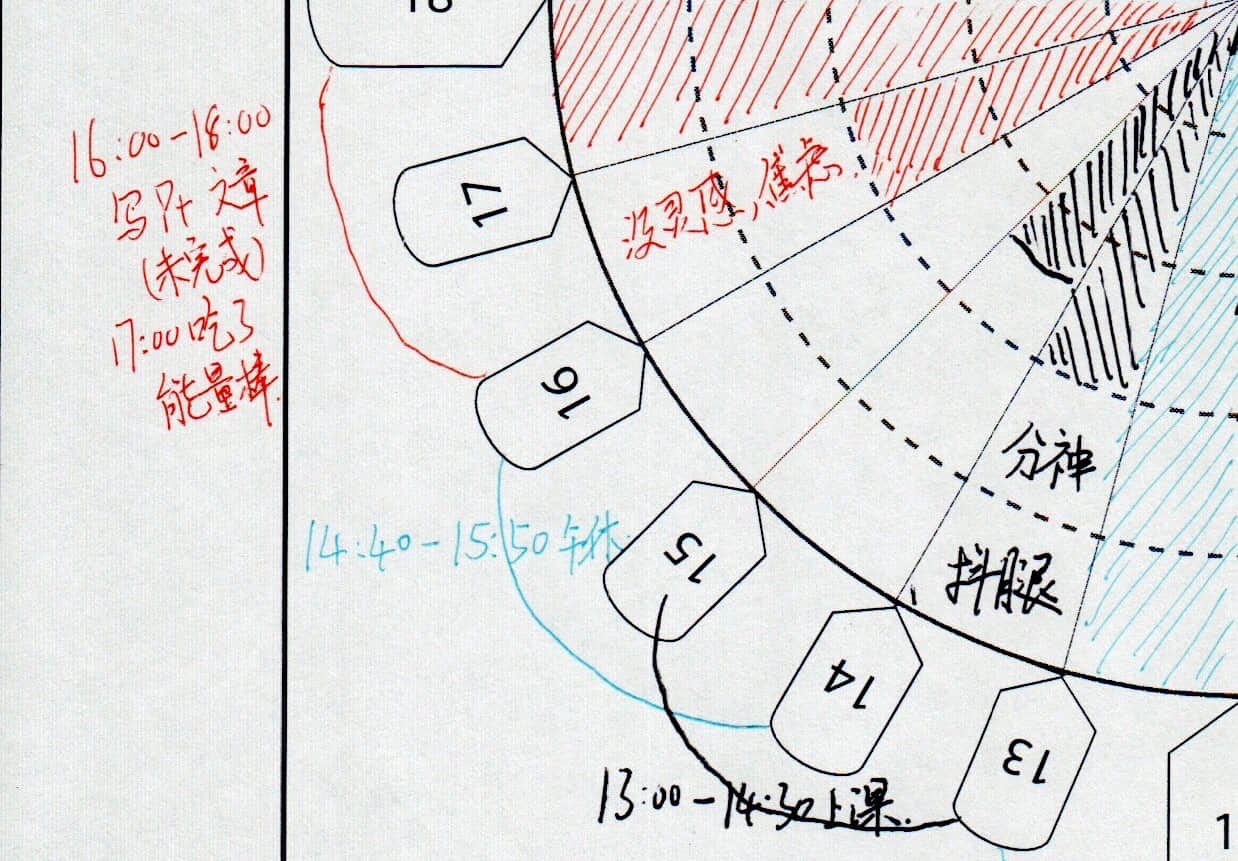 18
16:00-18:00
写PT文章
(未完成)
17:00吃了
能量棒.
17
没灵感,焦虑.
16
14:40-15:50午休.
15
分神
抖腿
14
13
13:00-14:30上课.
1